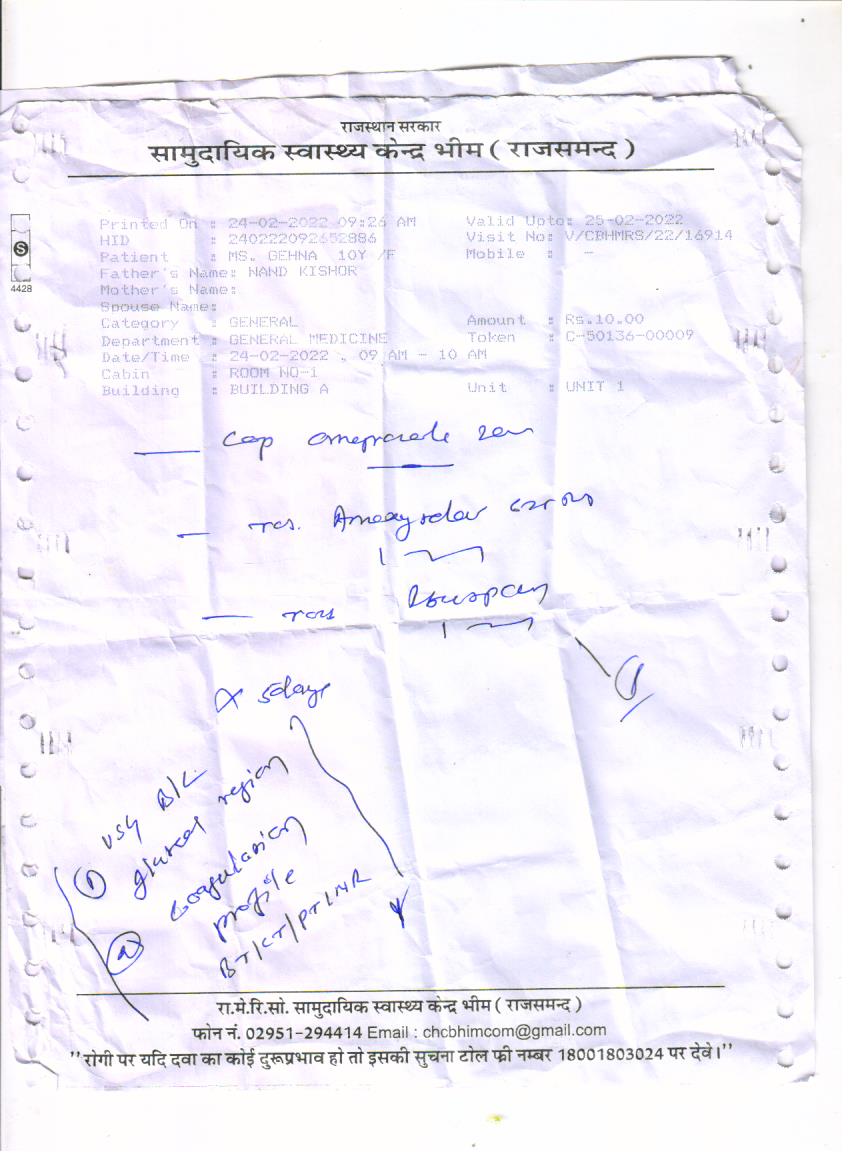 राजस्थान सरकार
सामुदायिक स्वास्थ्य केन्द्र भीम ( राजसमन्द )
Printed On : 24-02-2022 09:26 AM Valid Upto: 25-02-2022
HID : 240222092652886 Visit No: V/CBHMRS/22/16914
Patient : MS. GEHNA 10Y /F Mobile : -
Father's Name: NAND KISHOR
Mother's Name:
Spouse Name:
Category : GENERAL Amount : Rs.10.00
Department : GENERAL MEDICINE Token : C-50136-00009
Date/Time : 24-02-2022 , 09 AM - 10 AM
Cabin : ROOM NO-1
Building : BUILDING A Unit : UNIT 1
S
4428
— Cap
—
—
x 5days
① USG B/L
gluteal region
② Coagulation
profile
BT/CT/PT/INR
रा.मे.रि.सो. सामुदायिक स्वास्थ्य केन्द्र भीम ( राजसमन्द )
फोन नं. 02951-294414 Email : chcbhimcom@gmail.com
"रोगी पर यदि दवा का कोई दुरूप्रभाव हो तो इसकी सुचना टोल फ्री नम्बर 18001803024 पर देवे।"